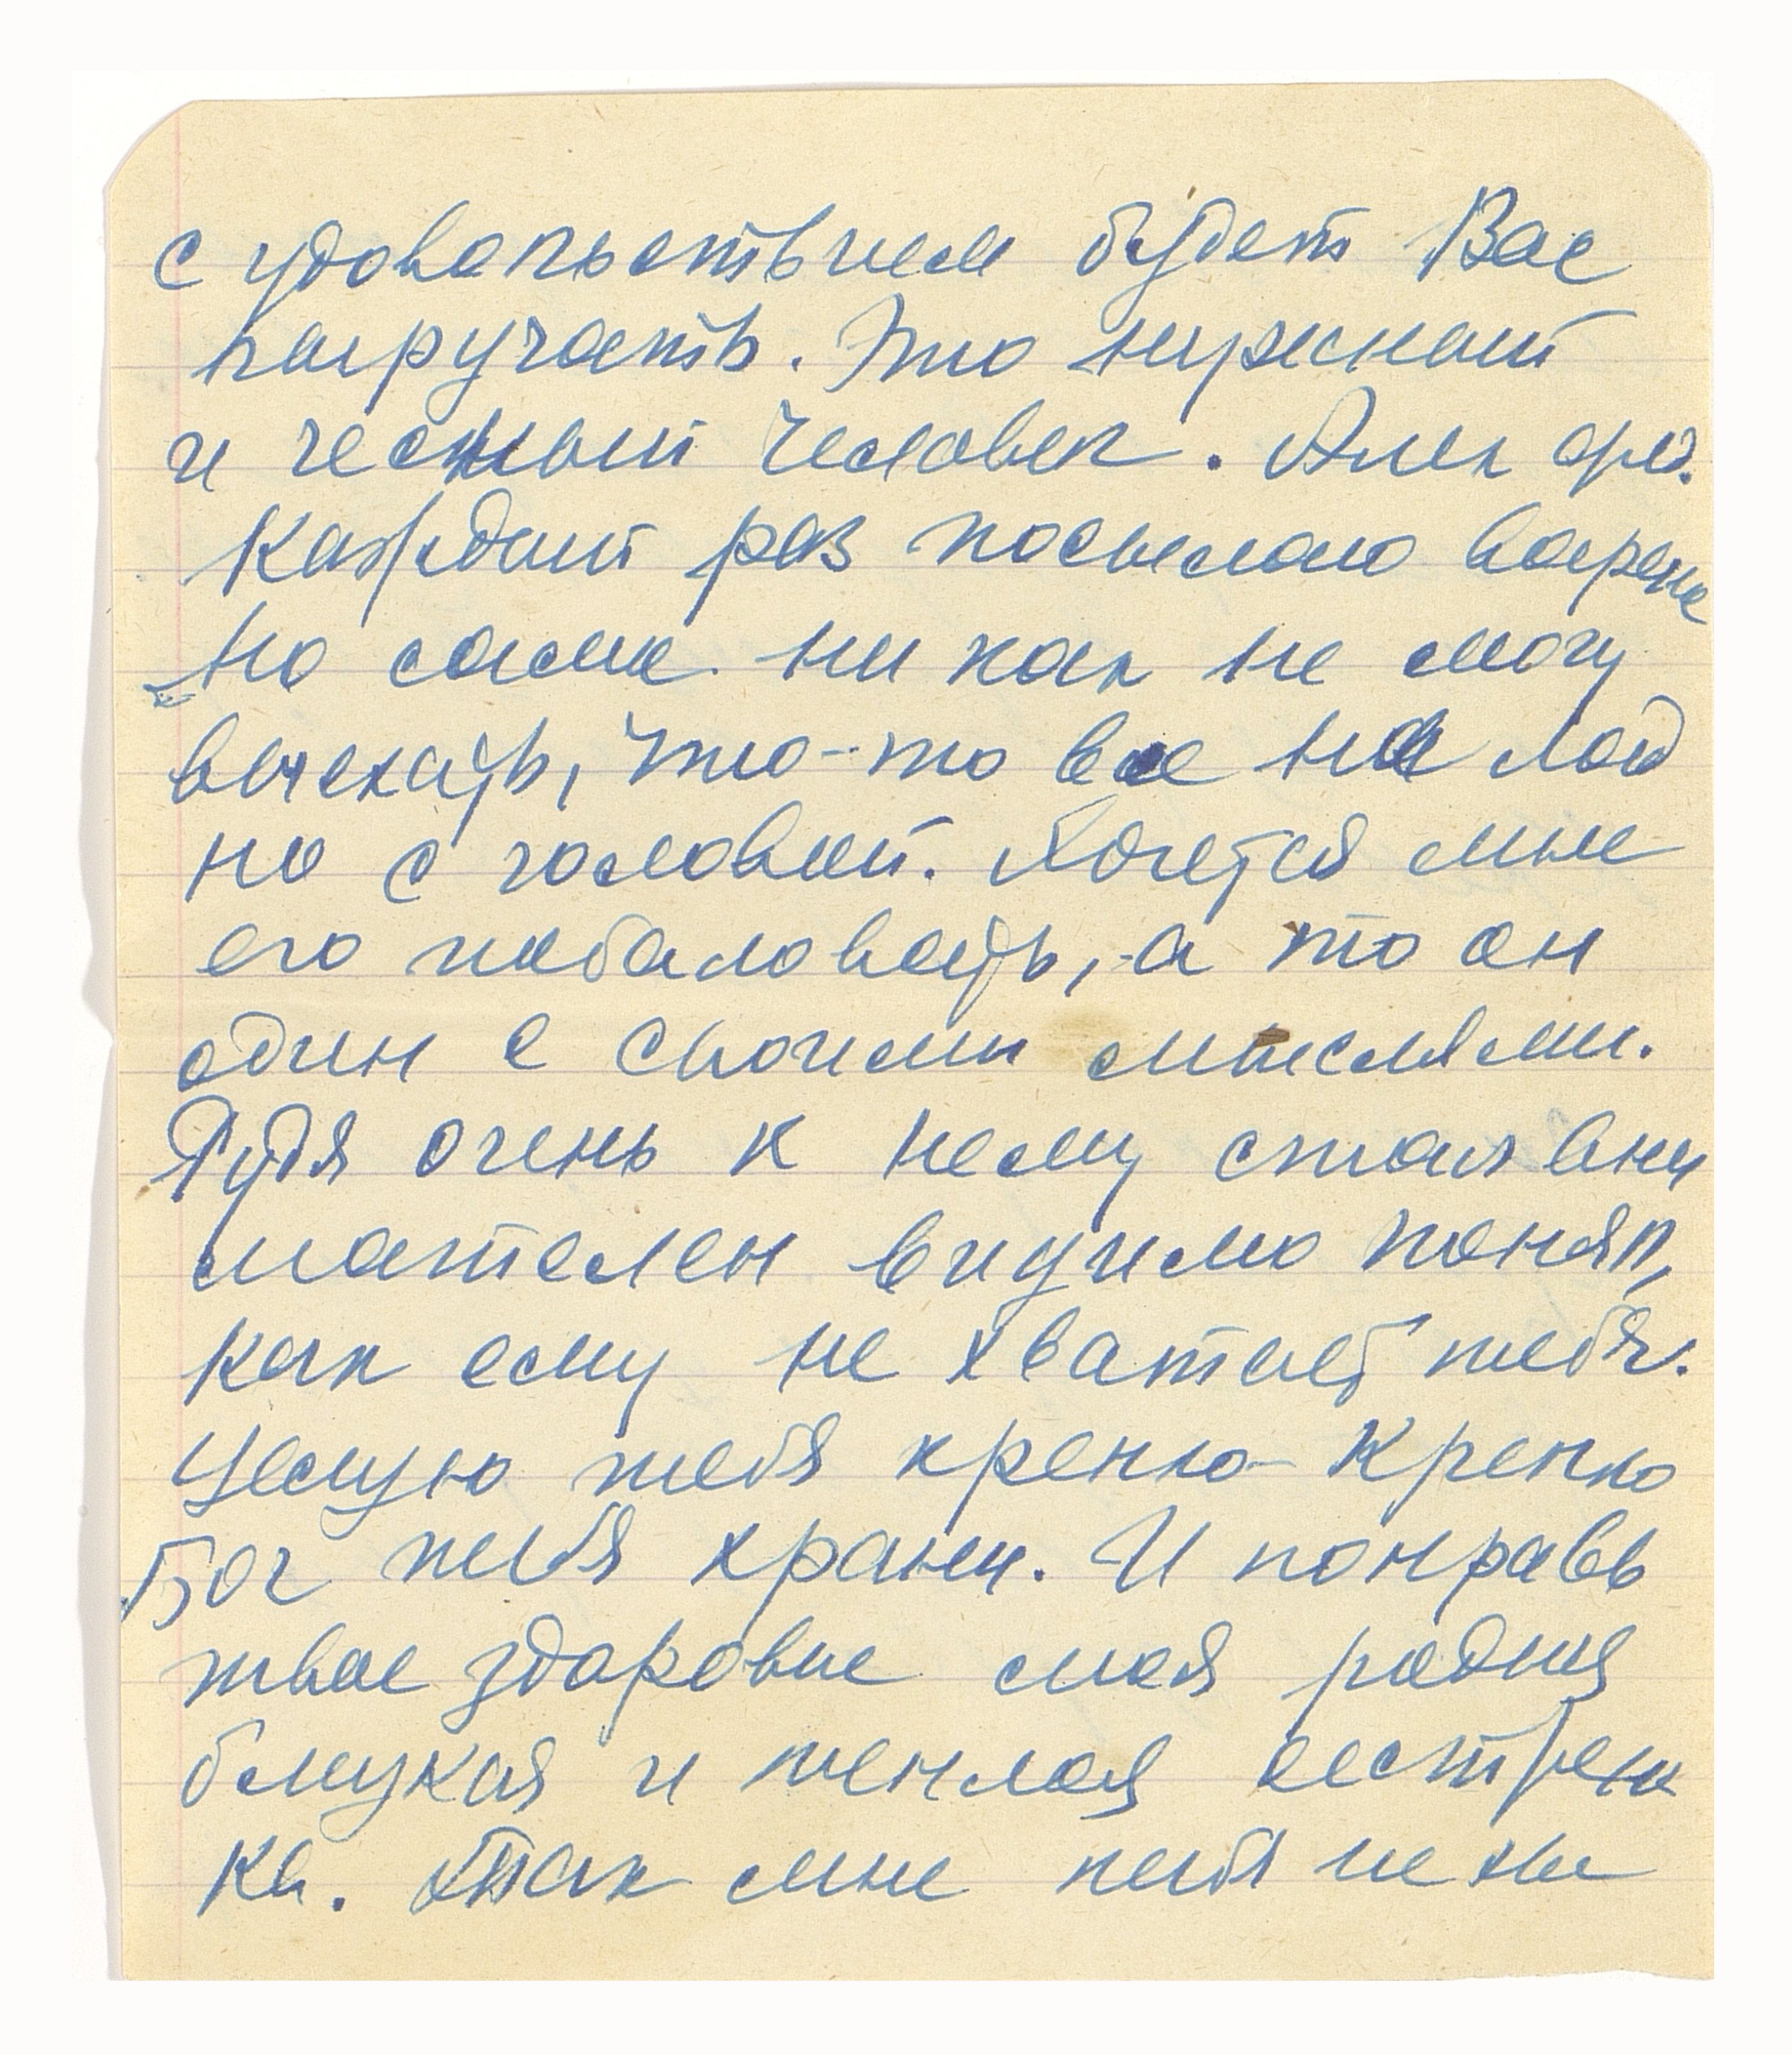 с удовольствием будет Вас
выручать. Это нужный
и честный человек. Алек
Каждый раз посылаю варенье
но сама ни как не могу
выехать, что-то все не лад
но с головой. Хочется мне
его побаловать, а то он
один с своими мыслями.
Рудя очень к нему стал вни
мателен видимо понял,
как ему не хватает тебя.
Целую тебя крепко-крепко
Бог тебя храни. И поправь
твое здоровие моя родная
близкая и теплая сестрен
ка. Так мне тебя не хва